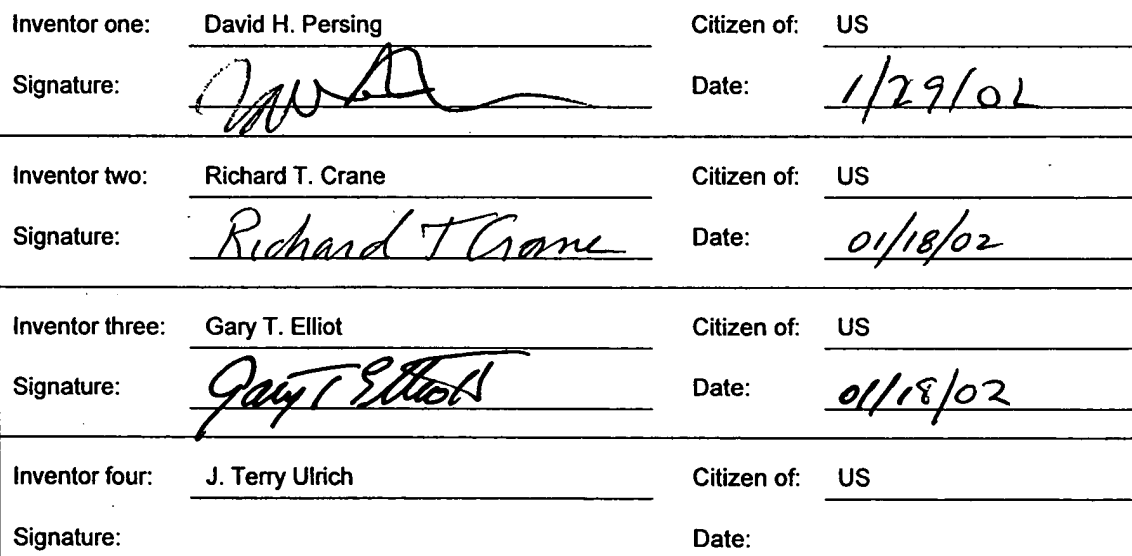 Inventor one: David H. Persing Citizen of: US
Signature: Date: 1/29/02
Inventor two: Richard T. Crane Citizen of: US
Signature: Richard T Crane Date: 01/18/02
Inventor three: Gary T. Elliot Citizen of: US
Signature: Gary T Elliott Date: 01/18/02
Inventor four: J. Terry Ulrich Citizen of: US
Signature: Date: